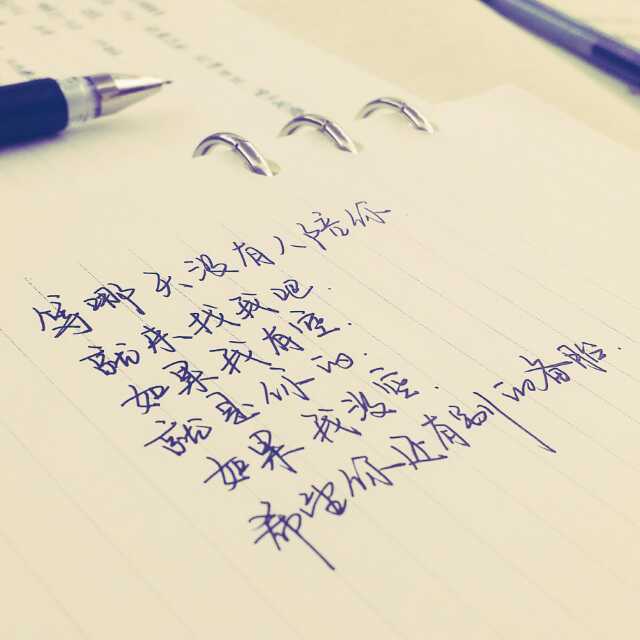 等哪天没有人陪你
就来找我吧.
如果我有空.
就是你的.
如果我没空.
希望你还有别的备胎.